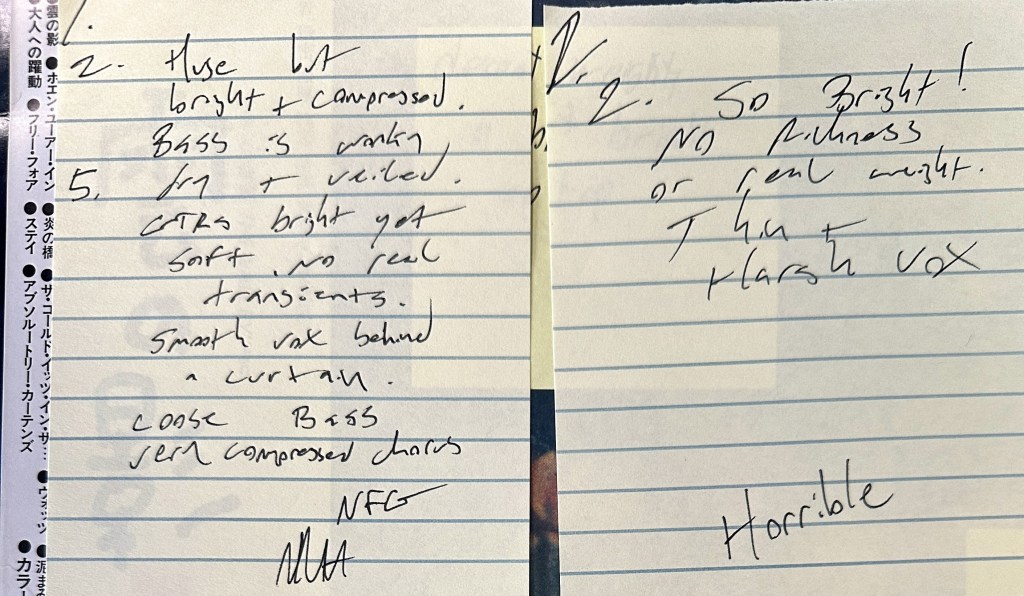 1.
2. Huge but
bright + compressed.
Bass is wonky
5. Dry + veiled.
GTRS bright yet
soft. No real
transients.
Smooth vox behind
a curtain.
Loose Bass
very compressed chorus
NFG
2. SO Bright!
NO Richness
or real weight.
Thin +
Harsh vox
Horrible
雲の影
●大人への躍動 ●フリー・フォア ●ステイ ●アブソルートリー・カーテンズ
●ホエン・ユーアー・イン ●炎の橋 ●サ・ゴールド・イッツ・イン・ザ… ●ウォッツ
●カラー